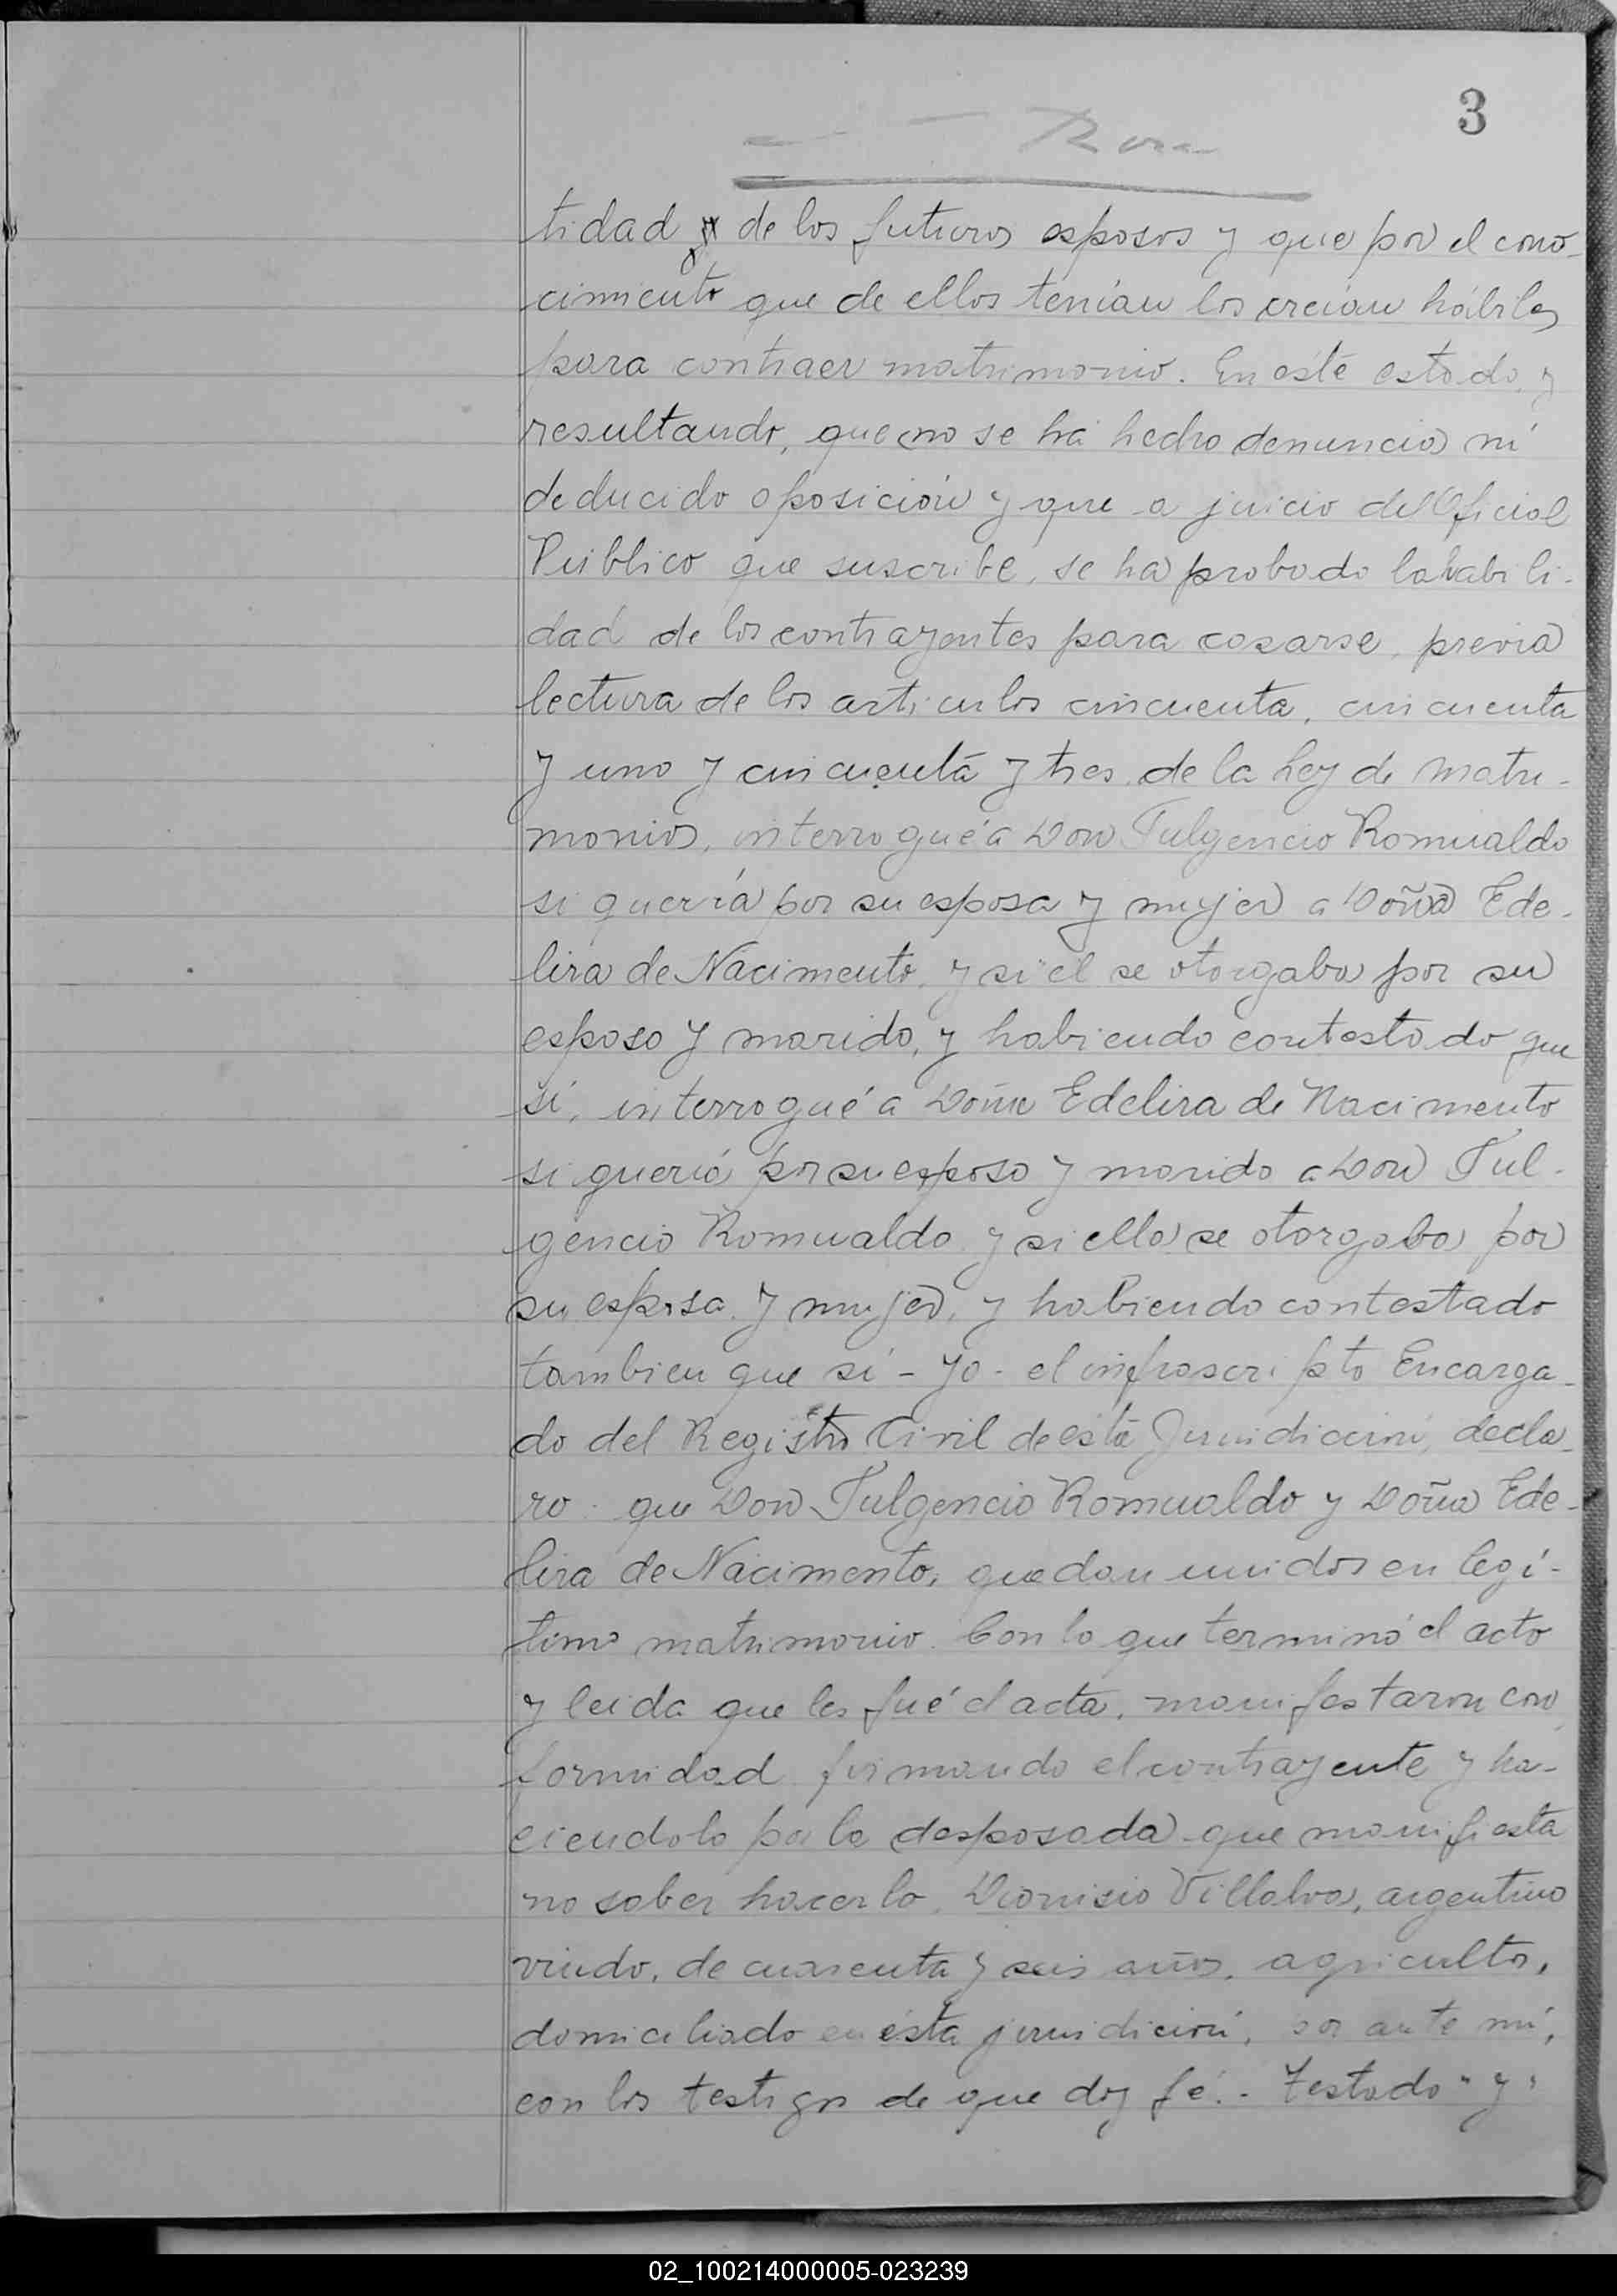 3
tidad y de los futuros esposos y que por el cono-
cimiento que de ellos tenían los creían hábiles
para contraer matrimonio. En éste estado, y
resultando, que no se há hecho denuncia ni
deducido oposición y que a juicio del Oficial
Público que suscribe, se ha probado la habili-
dad de los contrayentes para casarse, previa
lectura de los articulos cincuenta, cincuenta
y uno y cincuenta y tres de la Ley de Matri-
monios, interrogué a Don Fulgencio Romualdo
si quería por su esposa y mujer a Doña Ede-
lira de Nacimento, y si él se otorgaba por su
esposo y marido, y habiendo contestado que
sí, interrogué a Doña Edelira de Nacimento
si quería por su esposo y marido a Don Ful-
gencio Romualdo y si ella se otorgaba por
su esposa y mujer, y habiendo contestado
tambien que sí - Yo - el infrascripto Encarga-
do del Registro Civil de ésta Jurisdicción, decla-
ro: que Don Fulgencio Romualdo y Doña Ede-
lira de Nacimento, quedan unidos en legí-
timo matrimonio. Con lo que terminó el acto
y leida que les fué el acta, manifestaron con
formidad firmando el contrayente y ha-
ciendolo por la desposada que manifiesta
no saber hacerlo, Dionisio Villalva, argentino
viudo, de cuarenta y seis años, agricultor,
domiciliado en ésta jurisdicción, por ante mí,
con los testigos de que doy fé.- Testado "y"
02_100214000005-023239